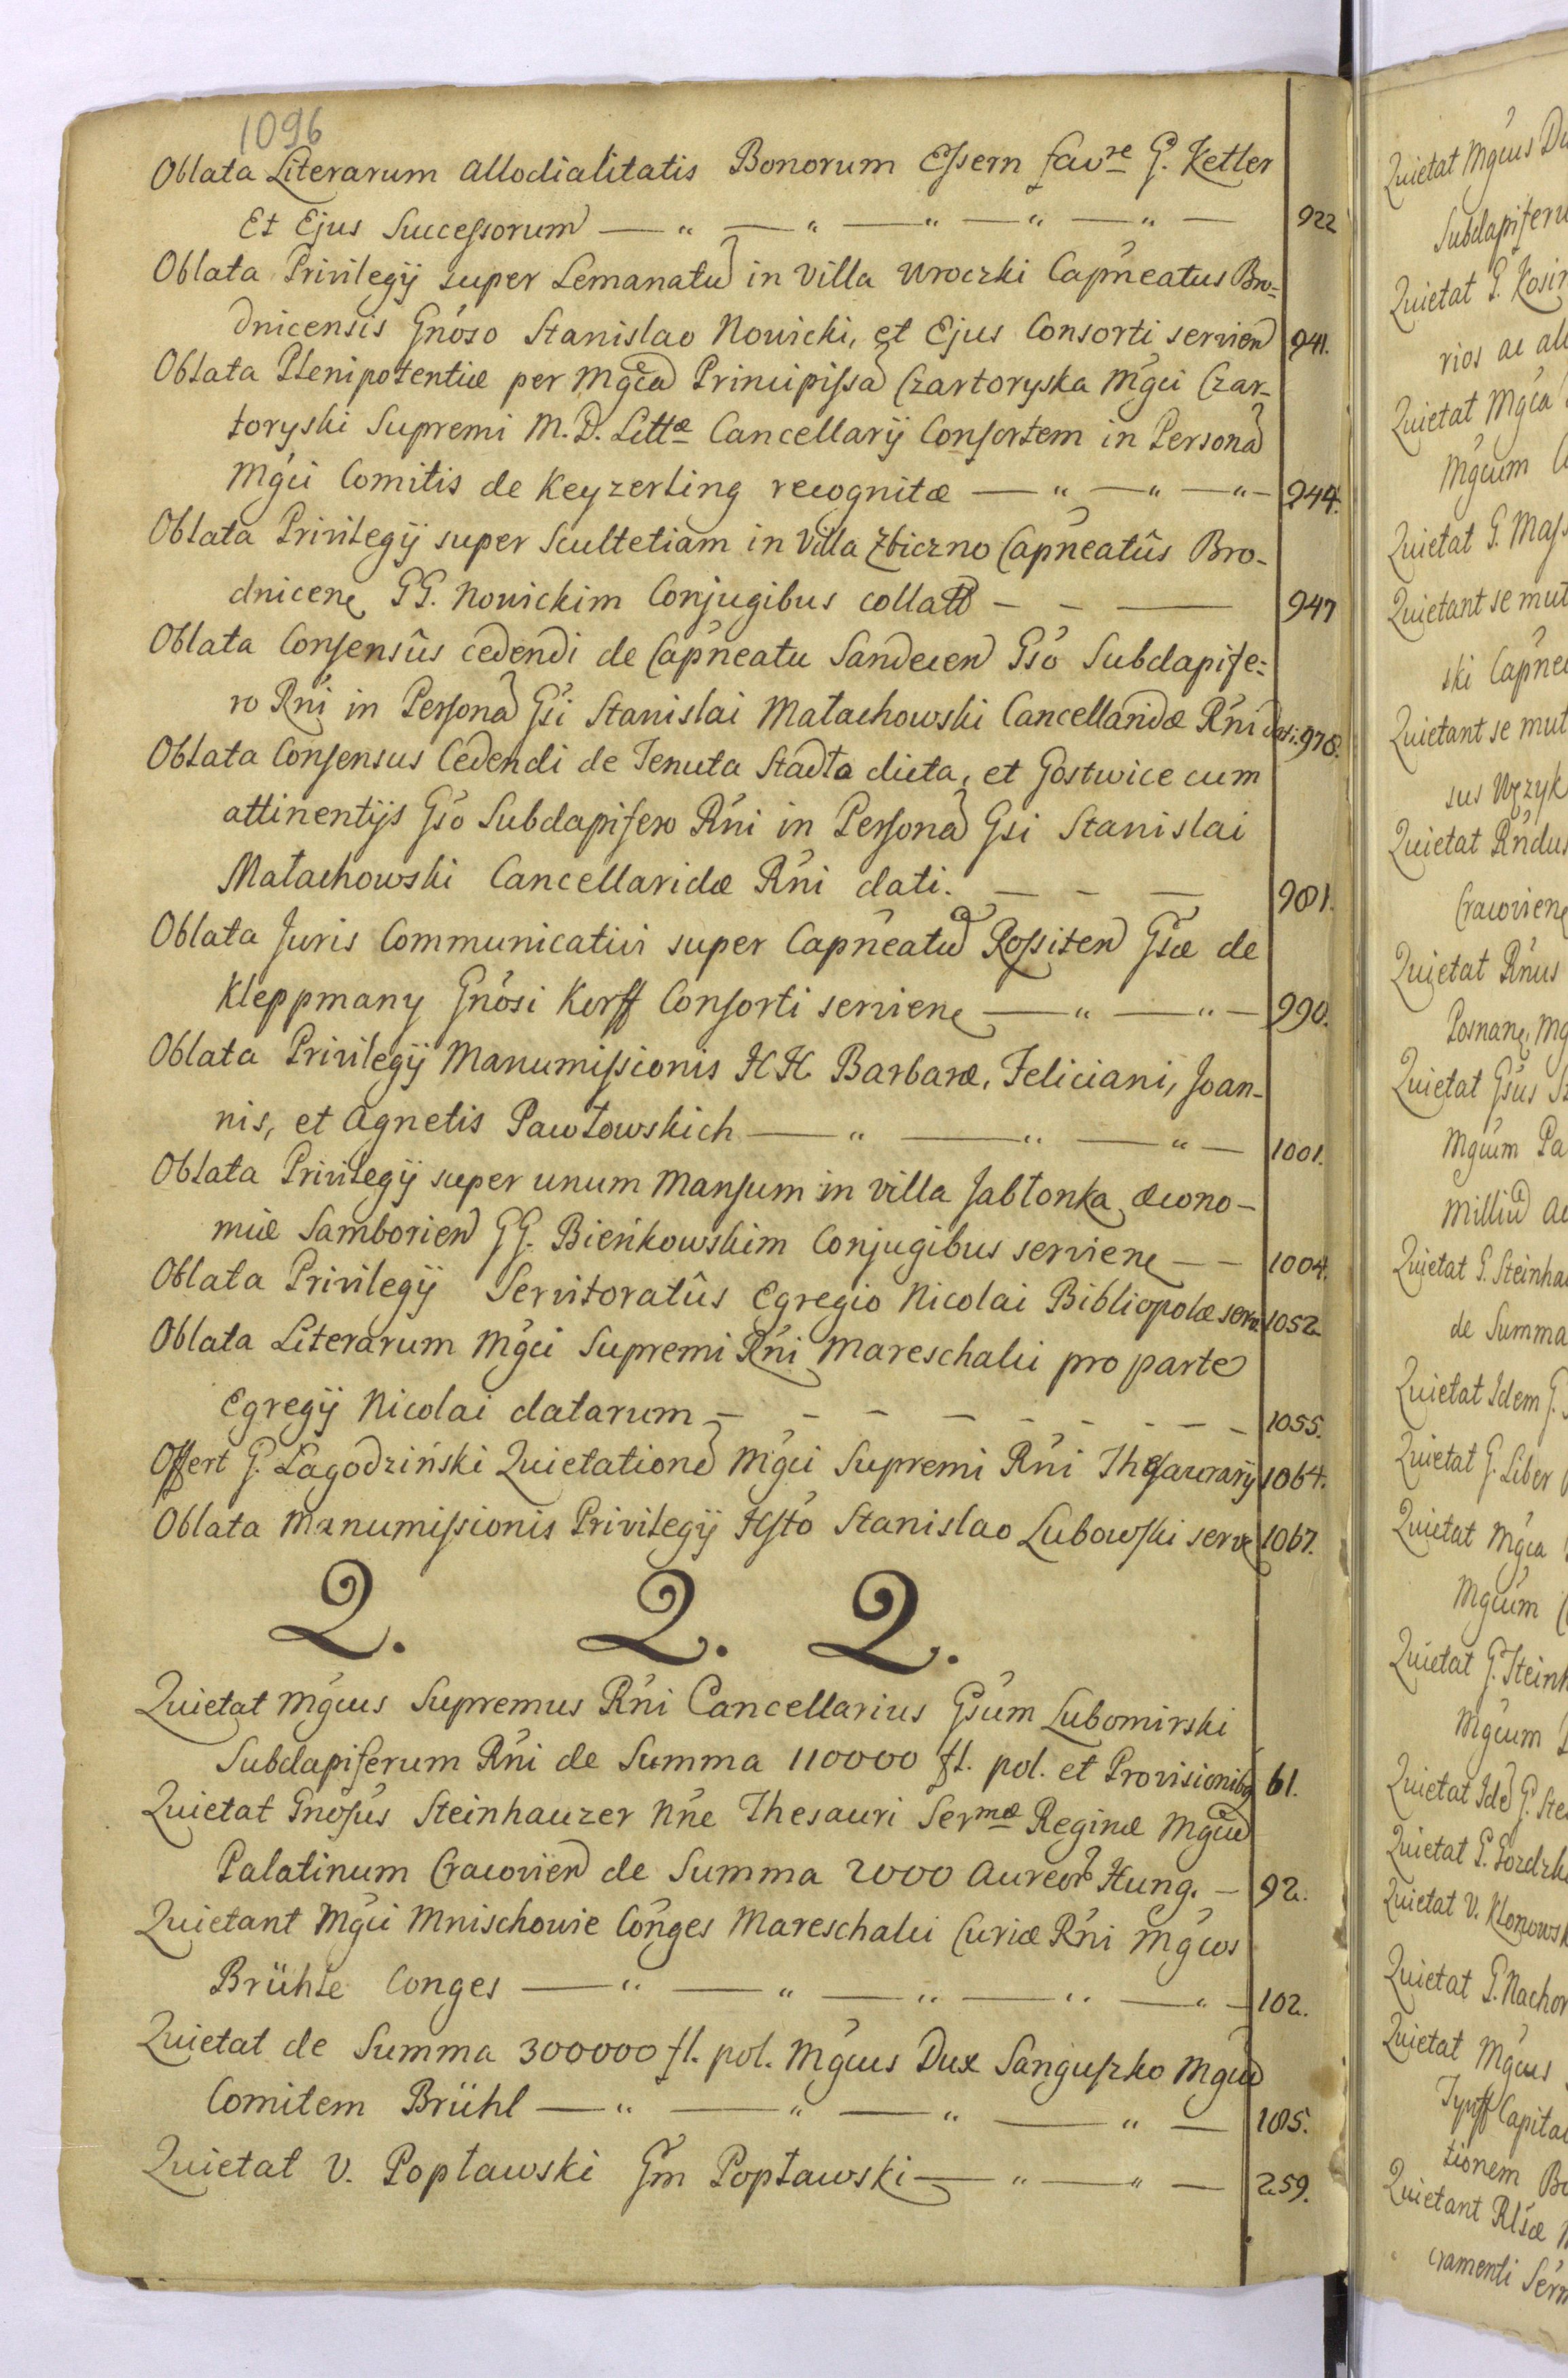 1096
Oblata Literarum Allodialitatis Bonorum Essern favre G. Ketler
Et Ejus Successorum — " — " — " — " — " — 922
Oblata Privilegÿ super Lemanatu in Villa Uroczki Capneatus Bro-
dnicensis Gnoso Stanislao Nowicki, et Ejus Consorti servien 941.
Oblata Plenipotentiæ per Mgca Principissa Czartoryska Mgci Czar-
toryski Supremi M. D. Littæ Cancellarÿ Consortem in Persona
Mgci Comitis de Keyzerling recognitæ — " — " — " — 944.
Oblata Privilegÿ super Scultetiam in Villa Zbiczno Capneatûs Bro-
dnicen GG. Nowickim Conjugibus collati — — — 947
Oblata Consensûs cedendi de Capneatu Sandecen Gso Subdapife-
ro Rni in Persona Gsi Stanislai Małachowski Cancellaridæ Rni dati. 978.
Oblata Consensus Cedendi de Tenuta Stadła dicta, et Gostwice cum
attinentÿs Gso Subdapifero Rni in Persona Gsi Stanislai
Małachowski Cancellaridæ Rni dati. — — — 981.
Oblata Juris Communicativi super Capneatu Rossiten Gsæ de
Kleppmany Gnosi Korff Consorti servien — " — " — 990.
Oblata Privilegÿ Manumissionis HH. Barbaræ, Feliciani, Joan-
nis, et Agnetis Pawłowskich — " — " — " — 1001.
Oblata Privilegÿ super unum Mansum in villa Jabłonka œcono-
miæ Samborien GG. Bieńkowskim Conjugibus servien — — 1004.
Oblata Privilegÿ Servitoratûs Egregio Nicolai Bibliopolæ serv 1052.
Oblata Literarum Mgci Supremi Rni Mareschalii pro parte
Egregÿ Nicolai datarum — — — — — — — — 1055.
Offert G. Łagodziński Quietatione Mgci Supremi Rni Thesaurarÿ 1064.
Oblata Manumissionis Privilegÿ Hsto Stanislao Lubowski serv 1067.
Q. Q. Q.
Quietat Mgcus Supremus Rni Cancellarius Gsum Lubomirski
Subdapiferum Rni de Summa 110000 fl. pol. et Provisionibq 61.
Quietat Gnosus Steinhauzer Nne Thesauri Sermæ Reginæ Mgcu
Palatinum Cracovien de Summa 2000 Aureor Hung. — 92.
Quietant Mgci Mnischowie Conges Mareschalii Curiæ Rni Mgcos
Brühle Conges — " — " — " — " — " — 102.
Quietat de Summa 300000 fl. pol. Mgcus Dux Sanguszko Mgcu
Comitem Brühl — " — " — " — " — 185.
Quietat V. Popławski Gm Popławski — " — " — 259.
Quietat Mgcus
Subdapiferu
Quietat G.
rios ac
Quietat Mgca
Mgcum
Quietat G.
Quietant se mut
ski Capne
Quietant se mut
sus Wężyk
Quietat Rndus
Cracovien
Quietat Rnus
Posnan, Mg
Quietat Gsus
Mgcum Pa
Milliu
Quietat G. Steinha
de Summa
Quietat Idem G.
Quietat G. Liber
Quietat Mgca
Mgcum
Quietat G. Stein
Mgcum
Quietat Ide G. Ste
Quietat G.
Quietat V. Klonowsk
Quietat G. Nachor
Quietat Mgcus
Tynff Capita
tionem
Quietant Rlsæ
cramenti Serm